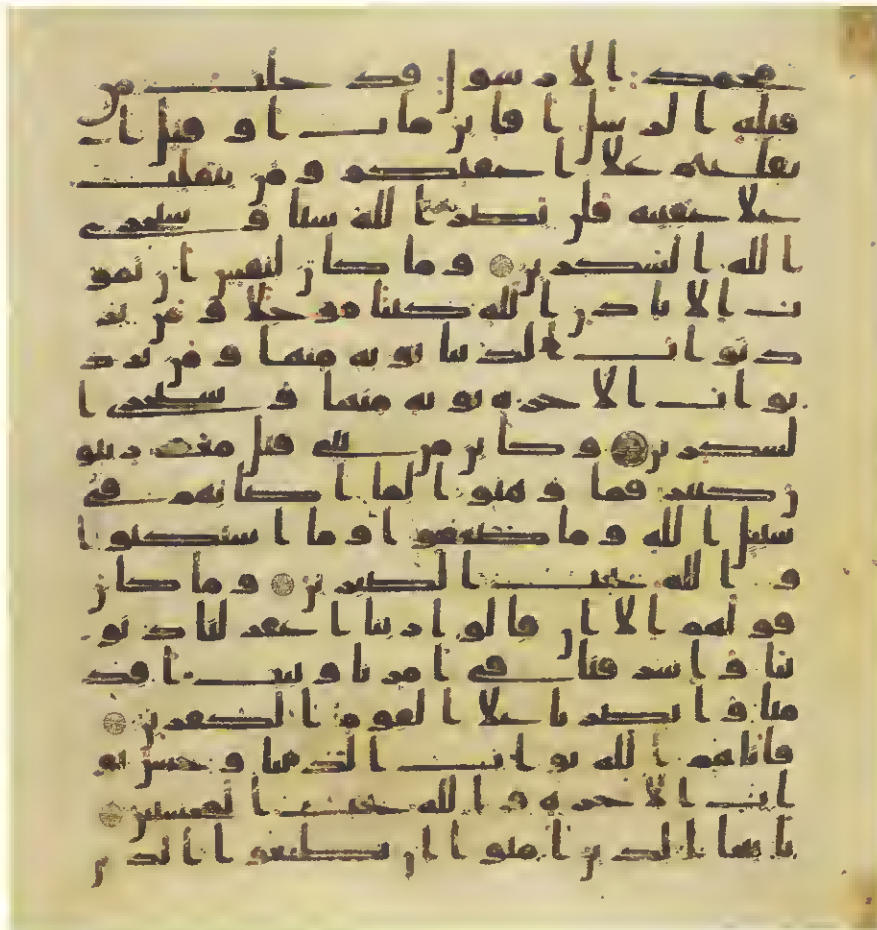 محمد الا رسول قد خلت من
قبله الرسل افاين مات او قتل ا
نقلبتم علا اعقبكم و من ينقلب
علا عقبيه فلن يضر الله شيا و سيجزى
الله الشكرين و ما كان لنفس ان تمو
ت الا باذن الله كتبا موجلا و من ير
د ثواب الدنيا نوته منها و من يرد
ثواب الاخرة نوته منها و سنجزى ا
لشكرين و كاين من نبى قتل معه ربيو
ن كثير فما وهنوا لما اصابهم فى
سبيل الله و ما ضعفوا و ما استكنوا
و الله يحب الصبرين و ما كان
قولهم الا ان قالوا ربنا اغفر لنا ذنو
بنا و اسرفنا فى امرنا و ثبت اقد
منا و انصرنا علا القوم الكفرين
فاتاهم الله ثواب الدنيا و حسن ثو
اب الاخرة و الله يحب المحسنين
يايها الذين امنوا ان تطيعوا الذين